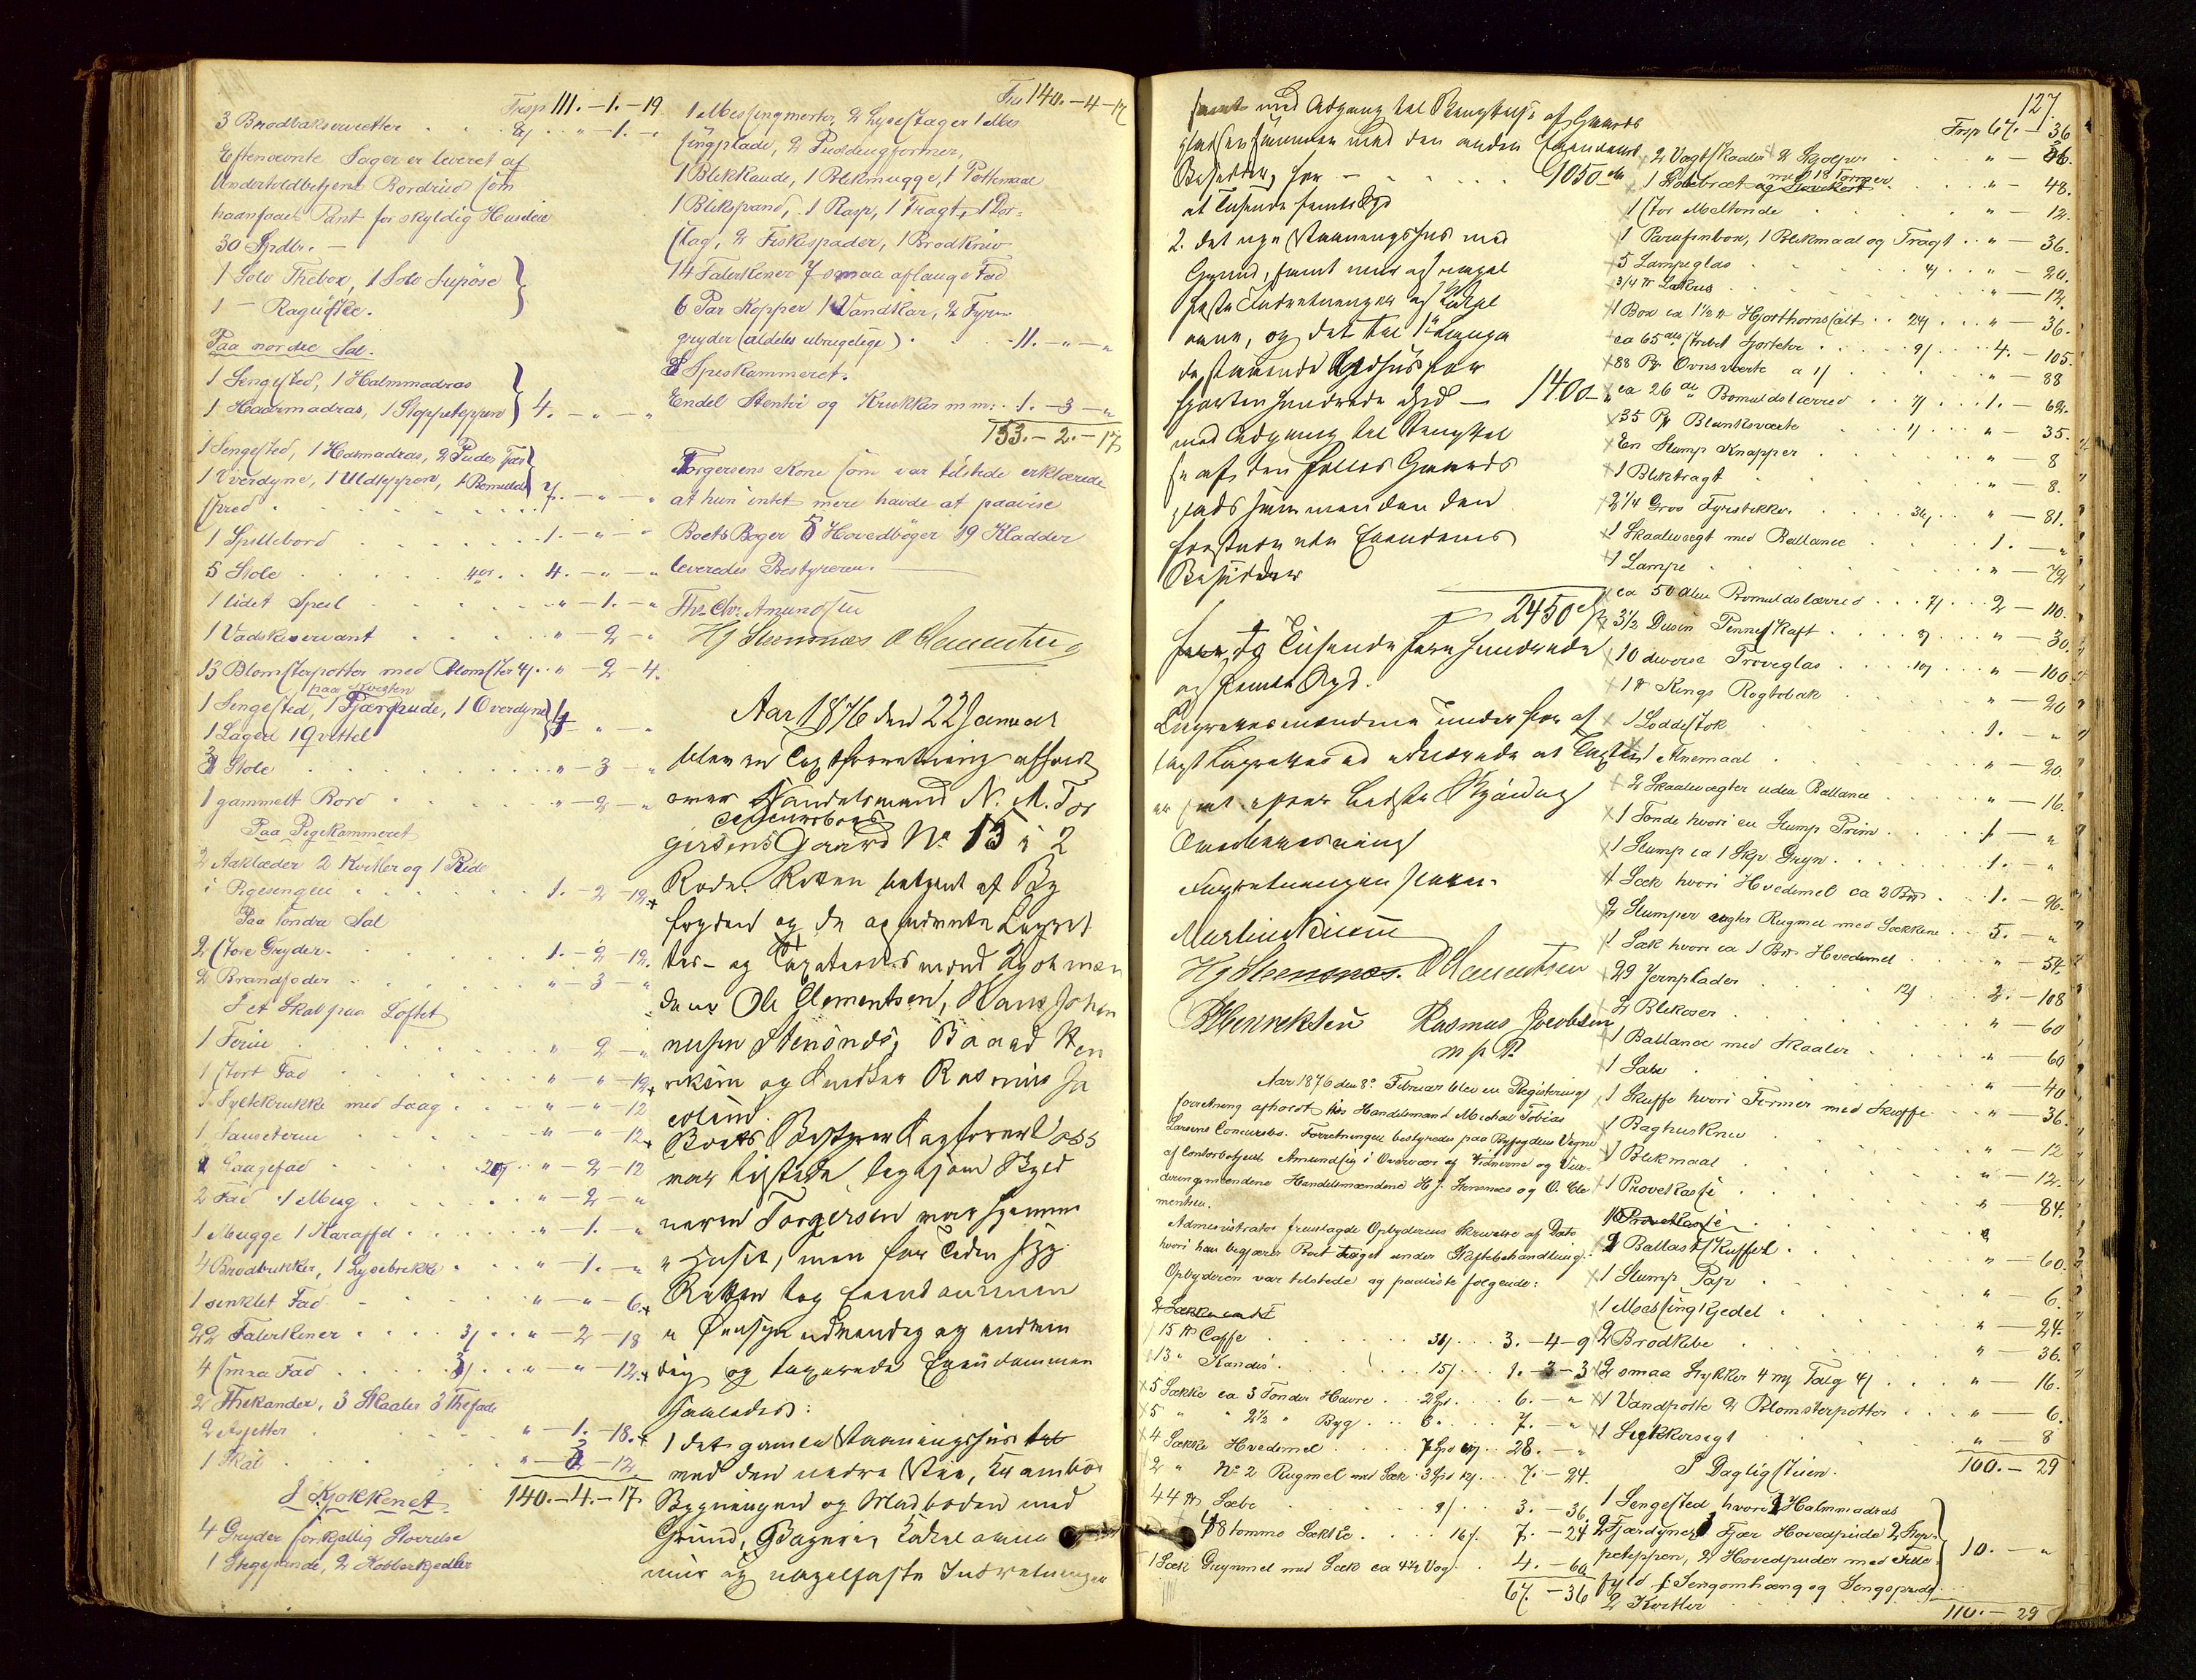 Trsp 111. - 1. - 19
3 Brodbakservietter . . 8/ . . " - 1. - "
Eftenævnte Sager er leveret af
Undertoldbetjent Bordrud som
haanfaaet Pant for skyldig Husleie
30 Spdlr. -
1 Sølv Thebox, 1 Sølv Supøse
1 — Raguskee.
Paa nordre Sal.
1 Sengested, 1 Halmmadras
1 Haarmadras, 1 Stoppeteppen 4. - " - "
1 Sengested, 1 Halmadras, 2 Puder Fjær
1 Overdyne, 1 Uldteppen, 1 Bomulds
spred . . . 7. - " - "
1 Spillebord . . . 1. - " - "
5 Stole . . . 4 ort . . 4. - " - "
1 lidet Speil . . . " - 1. - "
1 Vadskeservant . . . " - 2 - "
13 Blomsterpotter med Blomster 4/ . . " - 2 - 4.
1 Sengested, 1 Fjærpude, 1 Overdyne
1 Lagen 1 Qvittel 4 - " - "
3 Stole . . . " - 3 - "
1 gammelt Bord . . . " - 2 - "
Paa Pigekammeret
2 Aaklæder 2 Kvitler og 1 Rede
i Pigesengen . . . 1. - 2 - 12.
Paa søndre Sal
2 store Gryder . . . 1. - 2 - 12.
2 Brandspder . . . " - 3 - "
I et Skab paa Loftet
1 Terin . . . " - 2 - "
1 stort Fad . . . " - " - 12
1 Syltekrukke med Laag . . . " - " - 12
1 Sauseterin . . . " - " - 12
2 Gaugefad . . . 20/ . . " - 2 - 12
2 Fad 1 Mug . . . " - 2 - "
1 Mugge 1 Karaffel . . . " - 1. - "
4 Brodbrikker, 1 Lysebrikke . . " - 1. - "
1 senklet Fad . . . " - " - 6.
22 Talerkener . . . 3/ . . " - 2 - 18
4 smaa Fad . . . 3/ . . " - " - 12.
2 Thekander, 3 Skaaler 3 Thefade
2 Asjetter . . . " - 1. - 18.
1 Skab . . . " - 3 - 12
I Kjøkkenet. 140. - 4. - 17
4 Gryder forskjellig Størrelse
1 Stegepande, 2 Kobberkjedler
Tra 140. - 4 - 17
1 Messingmorter, 2 Lysestager 1 Mes
singplade, 2 Puddingformer,
1 Blekkande, 1 Blekmugge, 1 Pottemaal
1 Blikspand, 1 Rasp, 1 Tragt, 1 Dor-
slag, 2 Fiskespader, 1 Brodkniv
14 Talerkener 7 smaa aflange Fad
6 Par Kopper 1 Vandkar, 2 Fyrn
gryder (aldeles ubrugelige) . . . 11. - " - "
I Speskammeret.
Endel Stentøi og Krukker m m: . 1. - 3 - "
153. - 2. - 17
Torgersens Kone som var tilstede erklærede
at hun intet mere havde at paavise
Boets Bøger 8 Hovedbøger 19 Kladder
leveredes Bestyreren.
Thr. Chr. Amundsen
Hj Steensnæs O Clementsen
Aar 1876 den 22 Januar
blev en Taxtforretning afholdt
over Handelsmand N. M. Tor
gersens Gaard No 15 i 2
Rode. Retten betjent af By
fogden og de opnævnte Lagret
tes- og Taxationsmænd Kjøbmæn
dene Ole Clementsen, Hans Johan
nesen Stensnæs, Baard Hen
riksen og Snedker Rasmus Ja
cobsen.
Boets Bestyrer Sagfører Voss
var tilstede ligesom Byed
neren Torgersen var hjemme
i Huset, men for Tiden syg
Retten tog Eiendommen
i Øiesyn udvendig og indven
dig og taxerede Eiendommen
saaledes:
1 det gamle Vaaningshus
med den nedre Stue, Krambod
Bygningen og Madboden med
Grund, Bageri, Kakelovne
mur og nagelfaste Indretninger
127.
samt med Adgang til Benyttelse af Gaards
pladsen sammen med den anden Eiendoms
Besidder, for - . . . 1050 Spd
et Tusende femti Spd
2. det nye Vaaningshus med
Grund, samt mur og nagel
faste Indretninger og Kakel
ovne, og det til
da staaende Bryghus for
fjorten hundrede Spd — 1400
med Adgang til Benyttel
se af den fælles Gaards
plads sammen den
Eiendoms
Besidder
2450
to Tusende fire hundrede
og femti Spd.
er sat efter bedste Skjøn og
Overbevisning
Forretningen sluttet.
Hj Steensnæs. O Clementsen
B Henriksen Rasmus Jacobsen
m p P.
Aar 1876 den 8de Februar blev en Registrerings
forretning afholdt hos Handelsmand Michal Tobias
Larsens Concursbo. Forretningen bestyredes paa Byfogdens Vegne
af Contorbetjent Amundsen i Overvær af Vidnerne og Vur-
deringsmændene Handelsmændene Hj. Stensnæs og O. Cle
mentsen.
Administrator fremlagde Opbyderens Skrivelse af Dato
hvori han begjærer Boet taget under Skiftebehandling.
Opbyderen var tilstede og paaviste følgende:
15 ℔ Caffe . . . 36/ . . 3. - 4 - 9
13 " Kandis . . . 15/ . . 1. - 3 - 3
5 Sække ca 3 Tønder Havre . . 2 Sp . . 6. - "
5 " " 2½ " Byg . . 3 " . . 7. - "
4 Sække Hvedemel . . . 7 Spd . . 28. - "
2 " No 2 Rugmel med Sæk . 3 Spd 12/ . . 7. - 24.
44 ℔ Sæbe . . . 9/ . . 3. - 36.
48 tomme Sække . . . 16/ . . 7. - 24
1 Sæk Grynmel med Sæk ca 4½ Vog . . 4. - 60
67. - 36
Trsp 67. - 36
2 Vægtskaaler 2 Skjolper . . . " - 36.
1 Støbebræt med 18 Former . . . " - 48.
1 stor Meltønde . . . " - 12.
1 Parafinbox, 1 Blikmaal og Tragt . . " - 36.
5 Lampeglas . . . 4/ . . " - 20.
3/4 ℔ Lakris . . . " - 12.
1 Box ca 1½ ℔ Hjorthornssalt . . 24/ . . " - 36.
ca 65 al stribet Sjorteter . . . 9/ . . 4. - 105.
88 Pk Ovnsværte a 1/ . . . " - 88
ca 26 al Bomuldslærred . . 7/ . . 1. - 62.
35 Pk Blanksværte . . 1/ . . " - 35.
En Slump Knapper . . . " - 8
1 Bliktragt . . . " - 8.
2¼ Gros Fyrstikker . . . 36/ . . " - 81.
1 Skaalvægt med Ballance . . . 1. - "
1 Lampe . . . " - 72
ca 50 Alen Bomuldslærred . . 7/ . . 2 - 110.
3½ Dusin Penneskaft . . . 9/ . . " - 30.
10 diverse Prøveglas . . . 10/ . . " - 100.
1 ℔ Rings Røgtobak . . . " - 20
1 Loddestok . . . 1. - "
1 Alnemaal . . . " - 20
2 Skaalvægter uden Ballance . . . " - 16.
1 Tønde hvori en Slump Prim . . . 1 - "
1 Slump ca 1 Skp Gryn . . . 1. - "
1 Sæk hvori Hvedemel ca 2 Bp . . 1. - 96.
2 Slumper sigtet Rugmel med Sækkene . . 5. - "
1 Sæk hvori ca 1 Bp Hvedemel . . . " - 54.
29 Jernplader . . . 12/ . . 2. - 108
2 Blikøser . . . " - 60
1 Ballance med Skaaler . . . " - 60
1 Sabe . . . " - 40
1 Skuffe hvori Former med Skuffe . . " - 36.
1 Baghuskniv . . . " - 12
1 Blikmaal . . . " - 12.
1 Prøvekasse . . . " - 84.
1 Ballastskuffel . . . " - 60.
1 Slump Pap . . . " - 6.
1 Messingkjedel . . . " - 24.
2 Brodkibe . . . " - 36.
2 smaa Stykker 4 Talg 4/ . . . " - 16.
1 Vandpøtte 2 Blomsterpotter . . . " - 6.
1 . . . " - 8
I Dagligstuen. 100. - 29
1 Sengested hvori 1 Halmmadras
2 Fjærdyner 1 Fjær Hovedpude 2 Stop-
peteppen, 2 Hovedpuder med Fille-
fyld 1 Sengomhæng og Sengspred 10. - "
2 Kvitler
110. - 29